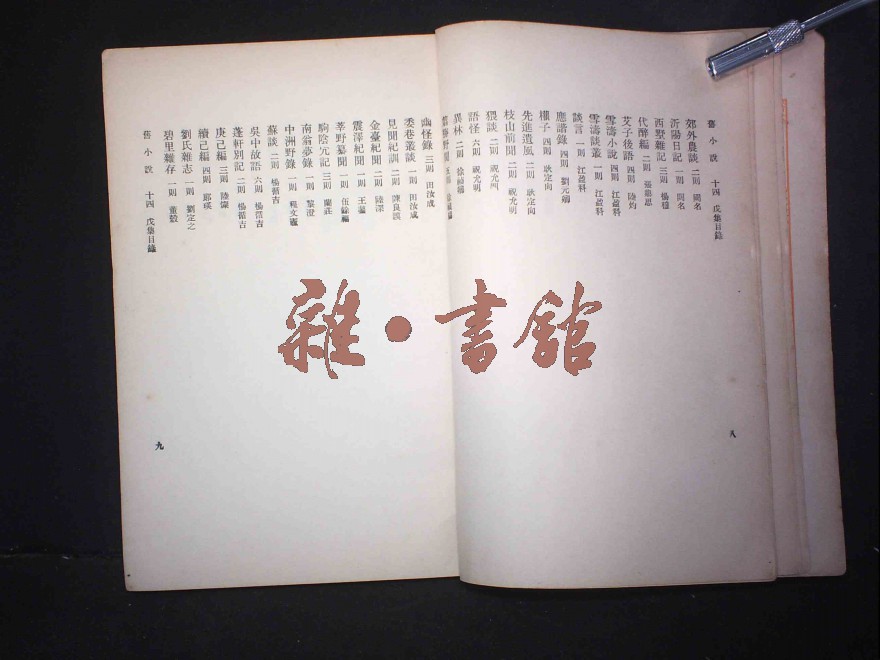 舊小說 十四 戊集目錄
郊外農談 二則 闕名
沂陽日記 一則 闕名
西墅雜記 三則 楊穆
代醉編 二則 張鼎思
艾子後語 四則 陸灼
雪濤小說 四則 江盈科
雪濤談叢 一則 江盈科
談言 一則 江盈科
應諧錄 四則 劉元卿
權子 四則 耿定向
先進遺風 二則 耿定向
枝山前聞 二則 祝允明
猥談 二則 祝允明
語怪 六則 祝允明
異林 二則 徐禎卿
八
幽怪錄 三則 田汝成
委巷叢談 一則 田汝成
見聞紀訓 二則 陳良謨
金臺紀聞 二則 陸深
震澤紀聞 一則 王鏊
莘野纂聞 一則 伍餘福
駒陰冗記 三則 闌莊
南翁夢錄 一則 黎澄
中洲野錄 一則 程文憲
蘇談 二則 楊循吉
吳中故語 六則 楊循吉
蓬軒別記 二則 楊循吉
庚己編 三則 陸粲
續己編 四則 郎瑛
劉氏雜志 一則 劉定之
碧里雜存 一則 董穀
舊小說 十四 戊集目錄
九
雜·書館